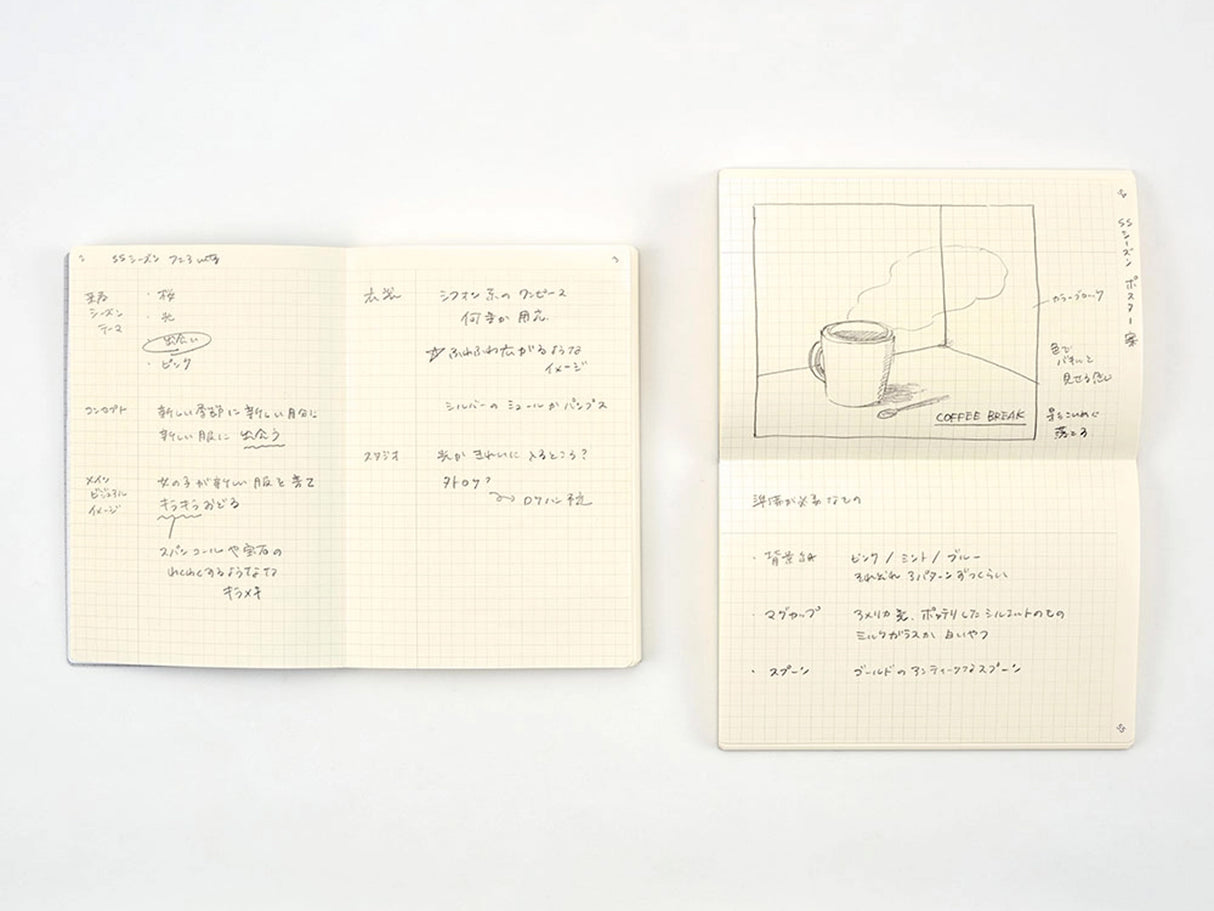 2
SSシーズン
来春
シーズン
テーマ
・桜
・光
・出会い
・ピンク
コンセプト
新しい季節に新しい自分に
新しい服に 出会う
メイン
ビジュアル
イメージ
女の子が新しい服を着て
キラキラおどる
スパンコールや宝石の
わくわくするような
キラメキ
3
衣装
シフォン系のワンピース
何着か用意
☆ふわふわ広がるような
イメージ
シルバーのミュールかパンプス
スタジオ
光がきれいに入るところ?
外ロケ?
ロケハン
54
SSシーズン ポスター案
カラーブロック
色で
パキッと
見せる感じ
影もこいめに
落とす
COFFEE BREAK
準備が必要なもの
・背景紙
ピンク / ミント / ブルー
それぞれ3パターンずつくらい
・マグカップ
アメリカ製、ポッテリしたシルエットのもの
ミルクガラスか白いやつ
・スプーン
ゴールドのアンティークなスプーン
55